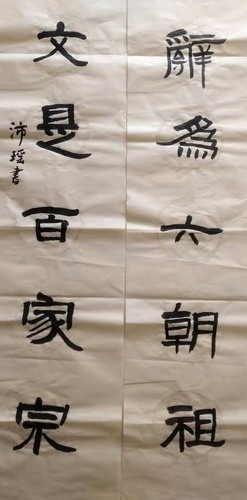 辭為六朝祖
文是百家宗
沛瑶書